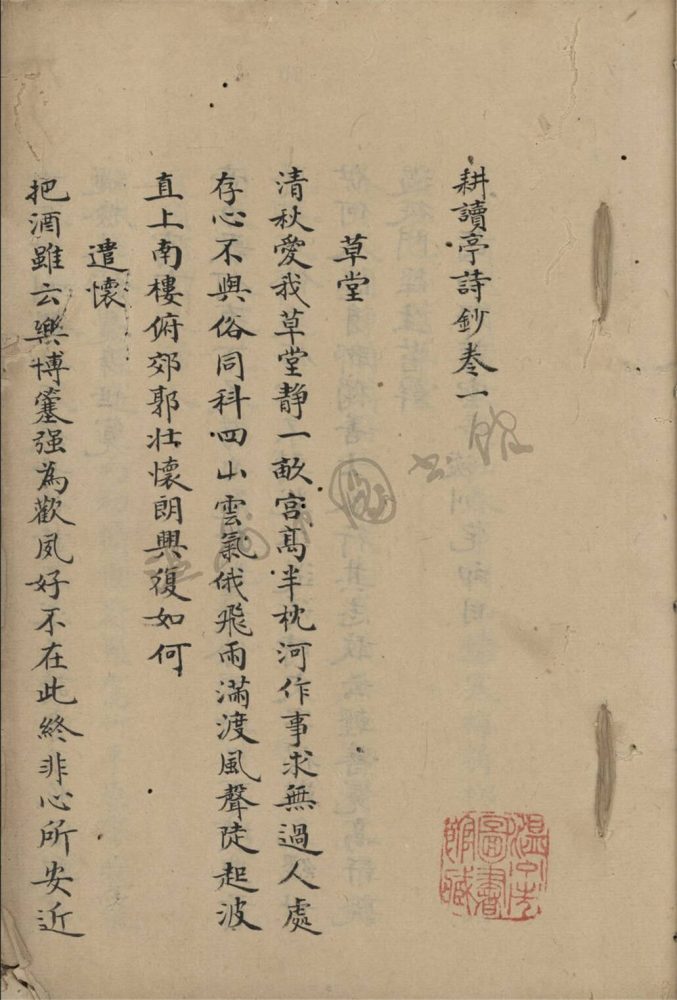 耕讀亭詩鈔卷一
草堂
清秋愛我草堂静一畝宫髙半枕河作事求無過人處
存心不與俗同科四山雲氣俄飛雨滿渡風聲陡起波
直上南樓俯郊郭壯懷朗興復如何
遣懷
把酒雖云樂博簺强為歡夙好不在此終非心所安近
圖書館藏